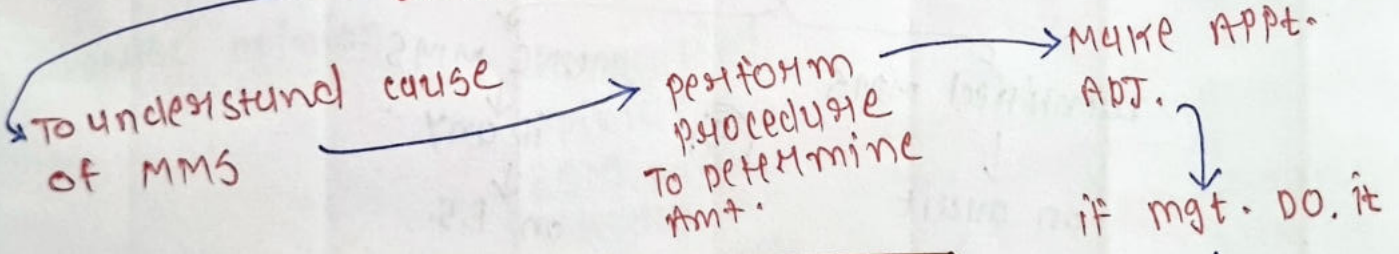 To understand cause
of MMS
perform
procedure
To Determine
Amt.
Make APPt.
ADJ.
if mgt. DO. it